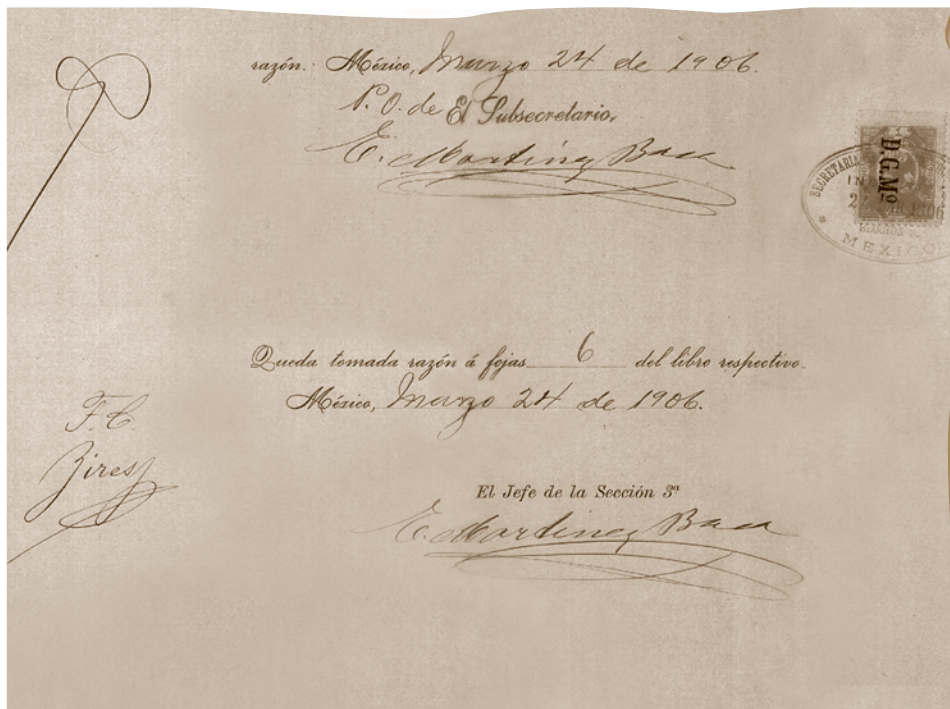 razón.: México, Marzo 24 de 1906.
P. O. de El Subsecretario,
E. Martínez Baca
D.G.Mo
SECRETARIA
1906
MEXICO
Queda tomada razón á fojas 6 del libro respectivo.
México, Marzo 24 de 1906.
F. C.
Zires
El Jefe de la Sección 3ª
E. Martinez Baca